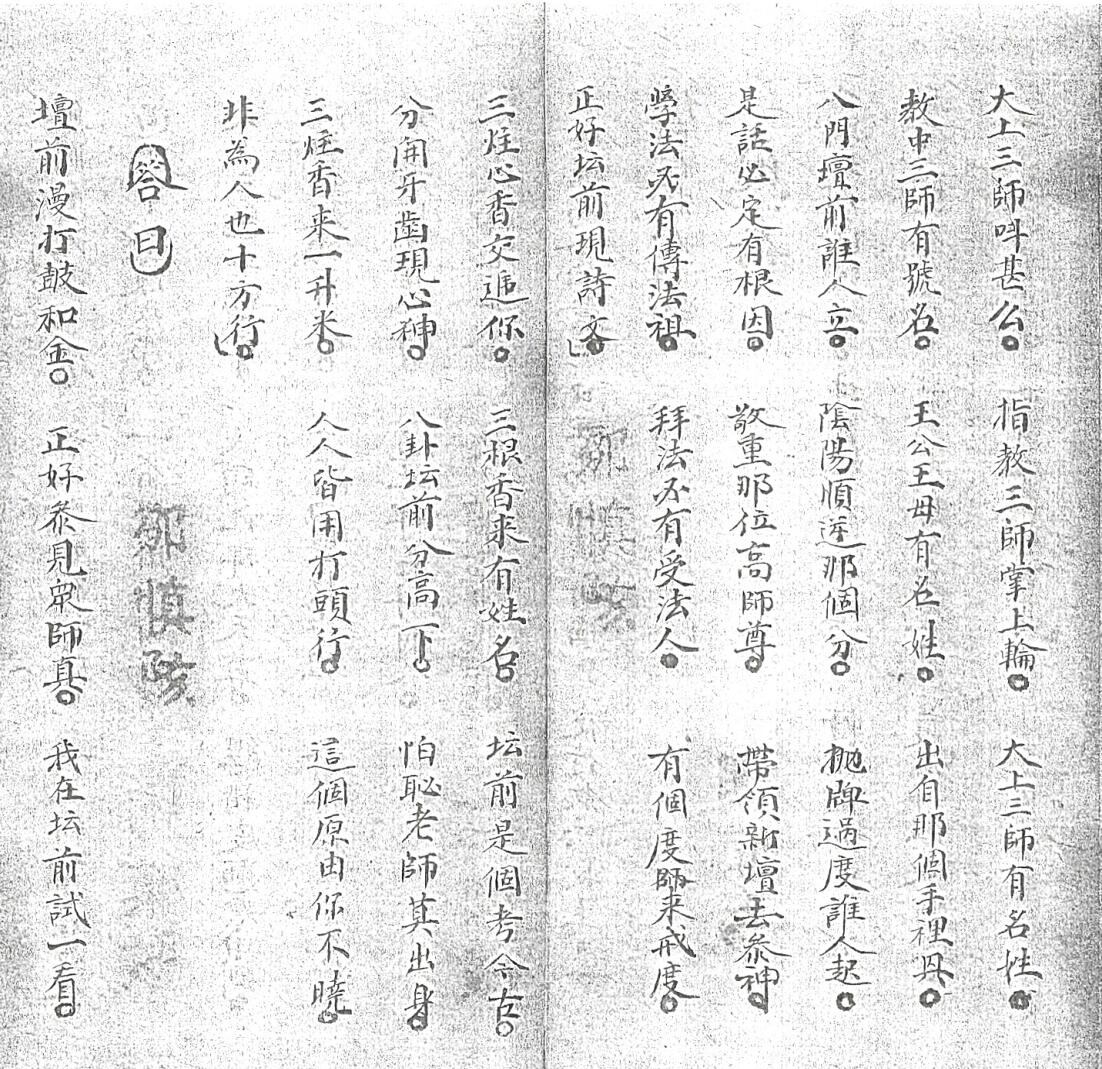 大上三師呌甚么。指教三師掌上輪。大上三師有名姓。
教中三師有號名。王公王母有名姓。出自那個手裡。
八門壇前誰人立。陰陽順逆那個分。抛牌過度誰人起。
是話必定有根因。敬重那位高師尊。帶領新壇去參神。
學法必有傳法祖。拜法必有受法人。有個度師來戒度。
正好坛前現詩文。
三炷心香交逓你。三根香來有姓名。坛前是個考今古。
分開牙齒現心神。八卦坛前分高下。怕恥老師莫出身。
三炷香来一升米。人人皆用打頭行。這個原由你不曉。
非為人也十方行。
答曰
鄧慎
壇前漫打鼓和金。正好叅見眾師真。我在坛前試一看。